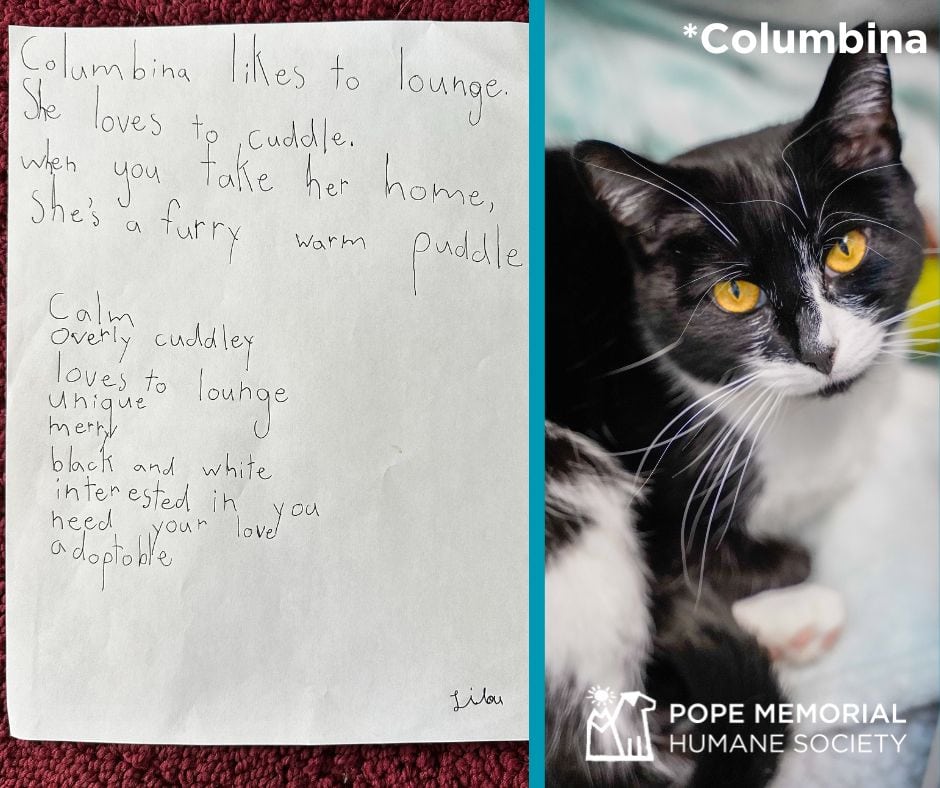 Columbina likes to lounge.
She loves to cuddle.
when you take her home,
She's a furry warm puddle
Calm
overly cuddley
loves to lounge
unique
merry
black and white
interested in you
need your love
adoptable
Lilou
*Columbina
POPE MEMORIAL
HUMANE SOCIETY